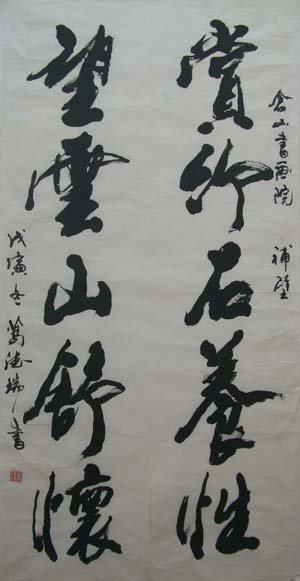 山書画院 補壁
賞竹石養性
望雲山舒懷
戊寅冬 德瑞書